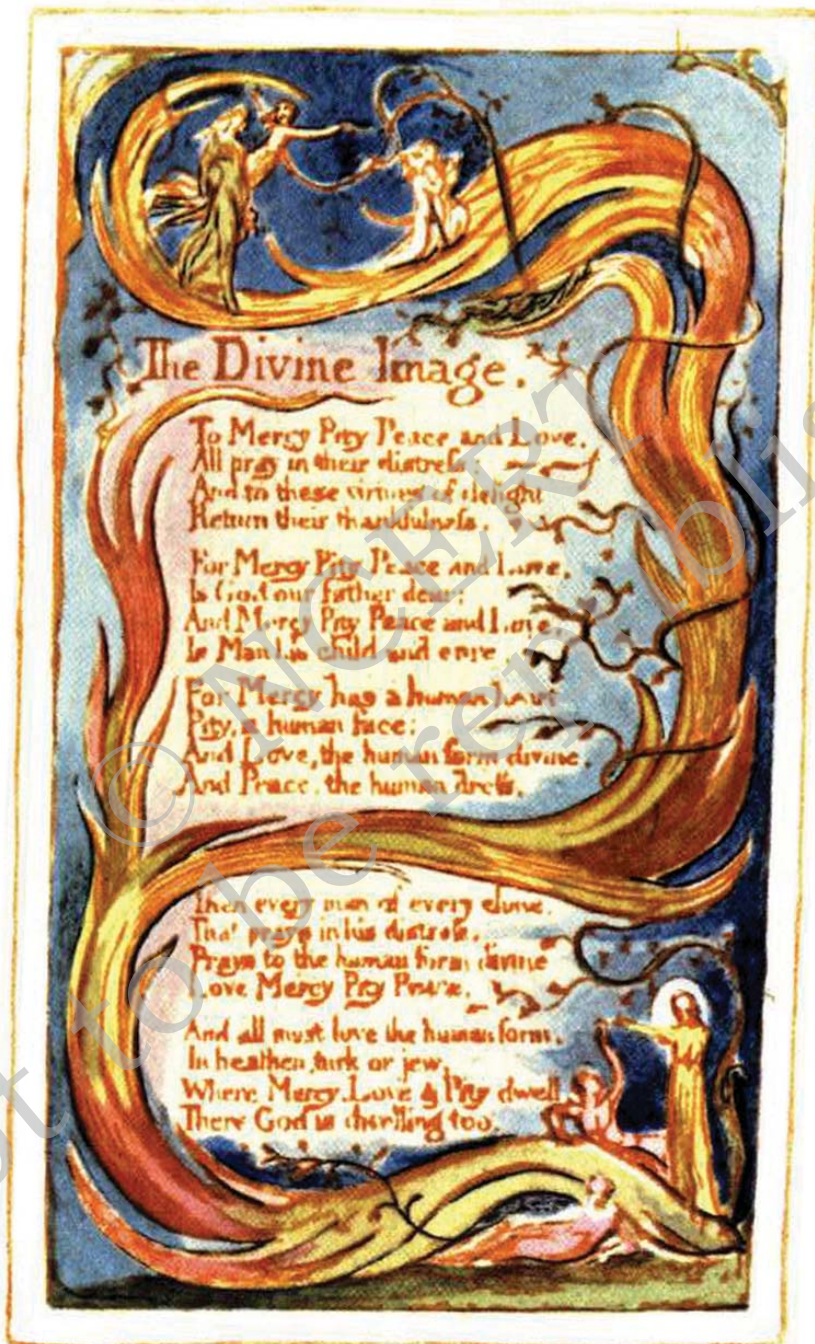 The Divine Image.
To Mercy Pity Peace and Love,
All pray in their distress:
And to these virtues of delight
Return their thankfulness.
For Mercy Pity Peace and Love,
Is God our father dear:
And Mercy Pity Peace and Love,
Is Man his child and care
For Mercy has a human heart
Pity, a human face:
And Love, the human form divine,
And Peace, the human dress.
Then every man of every clime,
That prays in his distress,
Prays to the human form divine
Love Mercy Pity Peace.
And all must love the human form,
In heathen, turk or jew.
Where Mercy, Love & Pity dwell
There God is dwelling too.
© NCERT
not to be republis